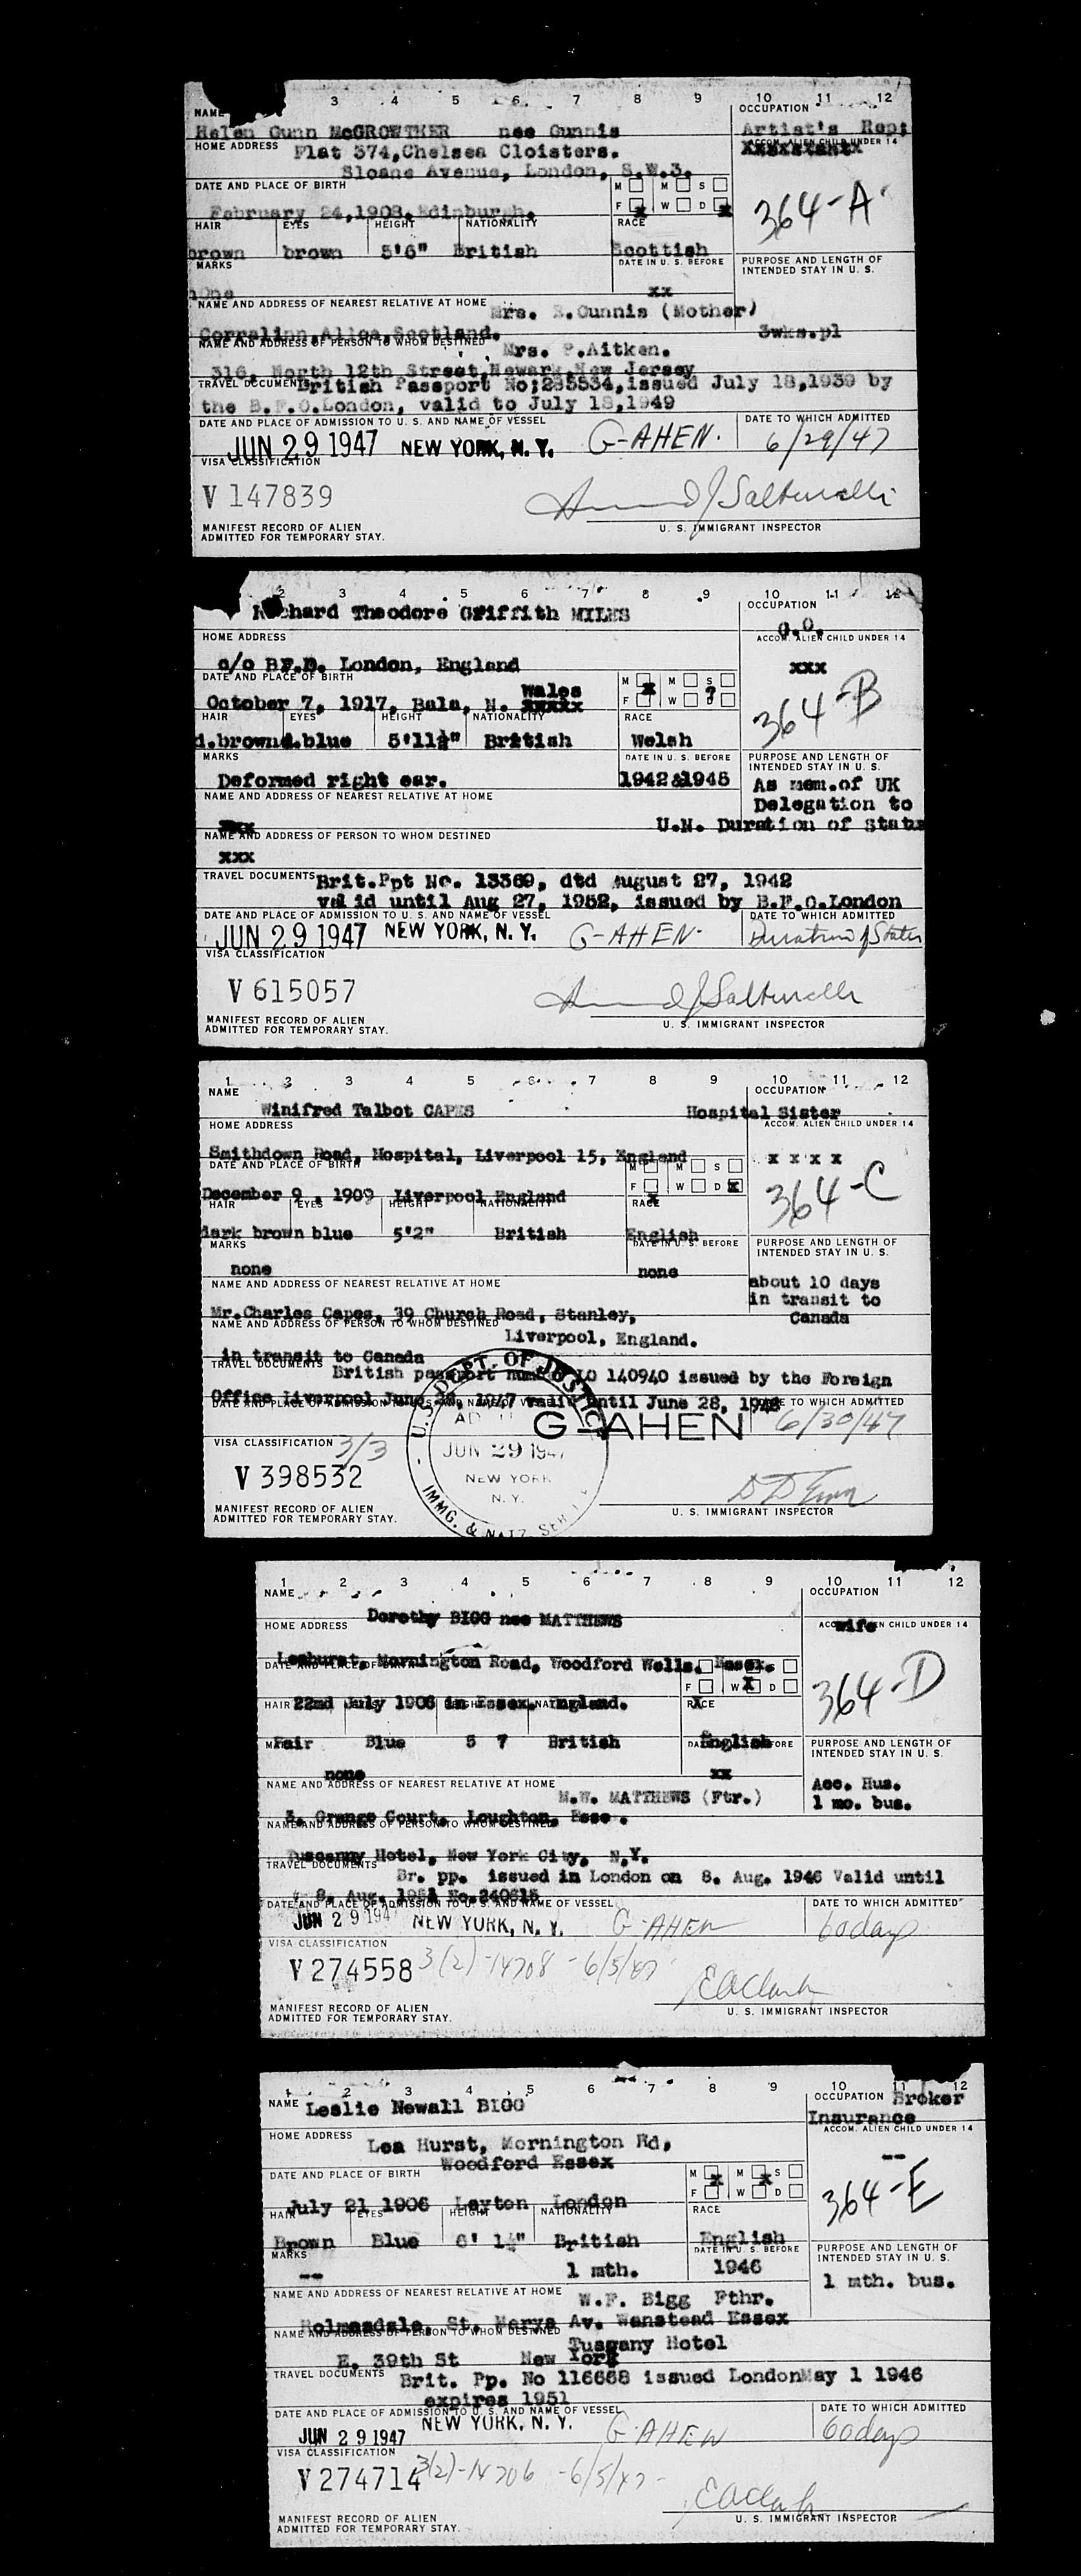 3 4 5 6 7 8 9 10 11 12
NAME OCCUPATION
Helen Gunn McGROWTHER nee Gunnis Artist's Rep;
HOME ADDRESS ACCOM. ALIEN CHILD UNDER 14
Flat 374, Chelsea Cloisters.
Sloane Avenue, London, S.W.3.
DATE AND PLACE OF BIRTH M M S
F W D
364-A
February 24,1908. Edinburgh.
HAIR EYES HEIGHT NATIONALITY RACE
brown brown 5'6" British Scottish
MARKS DATE IN U. S. BEFORE PURPOSE AND LENGTH OF
INTENDED STAY IN U. S.
none xx
NAME AND ADDRESS OF NEAREST RELATIVE AT HOME Mrs. Gunnis (Mother)
Alloa, Scotland. 3wks.pl
NAME AND ADDRESS OF PERSON TO WHOM DESTINED Mrs. P.Aitken.
316, North 12th Street, Newark, New Jersey
TRAVEL DOCUMENTS British Passport No; 285534, issued July 18,1939 by
the B.F.O.London, valid to July 18,1949
DATE AND PLACE OF ADMISSION TO U. S. AND NAME OF VESSEL DATE TO WHICH ADMITTED
JUN 29 1947 NEW YORK, N. Y. G-AHEN. 6/29/47
VISA CLASSIFICATION
V 147839
MANIFEST RECORD OF ALIEN U. S. IMMIGRANT INSPECTOR
ADMITTED FOR TEMPORARY STAY.
2 3 4 5 6 7 8 9 10 11 12
OCCUPATION
Richard Theodore Griffith MILES
G.O.
HOME ADDRESS ACCOM. ALIEN CHILD UNDER 14
c/o B.F.O. London, England xxx
DATE AND PLACE OF BIRTH M M S
F W D
364-B
Wales
October 7, 1917, Bala, N.
HAIR EYES HEIGHT NATIONALITY RACE
d.brown d.blue 5'11½" British Welsh
MARKS DATE IN U. S. BEFORE PURPOSE AND LENGTH OF
INTENDED STAY IN U. S.
Deformed right ear. 1942&1945 As mem.of UK
NAME AND ADDRESS OF NEAREST RELATIVE AT HOME Delegation to
xxx U.N. Duration of Status
NAME AND ADDRESS OF PERSON TO WHOM DESTINED
xxx
TRAVEL DOCUMENTS Brit.Ppt No. 13369, dtd August 27, 1942
valid until Aug 27, 1952, issued by B.F.O.London
DATE AND PLACE OF ADMISSION TO U. S. AND NAME OF VESSEL DATE TO WHICH ADMITTED
JUN 29 1947 NEW YORK, N. Y. G-AHEN- Duration of Status
VISA CLASSIFICATION
V 615057
MANIFEST RECORD OF ALIEN U. S. IMMIGRANT INSPECTOR
ADMITTED FOR TEMPORARY STAY.
1 2 3 4 5 6 7 8 9 10 11 12
NAME OCCUPATION
Winifred Talbot CAPES Hospital Sister
HOME ADDRESS ACCOM. ALIEN CHILD UNDER 14
Smithdown Road, Hospital, Liverpool 15, England x x x x
DATE AND PLACE OF BIRTH M M S
F W D
364-C
December 9, 1909 Liverpool England
HAIR EYES HEIGHT NATIONALITY RACE
dark brown blue 5'2" British English
MARKS DATE IN U. S. BEFORE PURPOSE AND LENGTH OF
INTENDED STAY IN U. S.
none none about 10 days
NAME AND ADDRESS OF NEAREST RELATIVE AT HOME in transit to
Mr.Charles Capes, 39 Church Road, Stanley, Canada
NAME AND ADDRESS OF PERSON TO WHOM DESTINED Liverpool, England.
in transit to Canada
TRAVEL DOCUMENTS British passport number LO 140940 issued by the Foreign
Office Liverpool June 28, 1947 valid until June 28, 1948
DATE AND PLACE OF ADMISSION TO U. S. AND NAME OF VESSEL DATE TO WHICH ADMITTED
G-AHEN 6/30/47
U. S. DEPT. OF JUSTICE
JUN 29 1947
NEW YORK
N. Y.
IMMG. & NATZ. SERV.
VISA CLASSIFICATION 3/3
V 398532
MANIFEST RECORD OF ALIEN U. S. IMMIGRANT INSPECTOR
ADMITTED FOR TEMPORARY STAY.
1 2 3 4 5 6 7 8 9 10 11 12
NAME OCCUPATION
Dorothy BIGG nee MATTHEWS
HOME ADDRESS ACCOM. ALIEN CHILD UNDER 14
wife
Leahurst, Mornington Road, Woodford Wells, Essex.
DATE AND PLACE OF BIRTH
F W D
364-D
HAIR 22nd July 1906 in Essex, England. RACE
Fair Blue 5 7 British English
PURPOSE AND LENGTH OF
INTENDED STAY IN U. S.
none xx Acc. Hus.
NAME AND ADDRESS OF NEAREST RELATIVE AT HOME M.W. MATTHEWS (Ftr.) 1 mo. bus.
3, Grange Court, Loughton, Essex.
NAME AND ADDRESS OF PERSON TO WHOM DESTINED
Tuscanny Hotel, New York City, N.Y.
TRAVEL DOCUMENTS Br. pp. issued in London on 8. Aug. 1946 Valid until
8. Aug. 1951 No.240615
DATE AND PLACE OF ADMISSION TO U. S. AND NAME OF VESSEL DATE TO WHICH ADMITTED
JUN 29 194 NEW YORK, N. Y. G-AHEN 60 days
VISA CLASSIFICATION
V 274558 3(2)-14708 -6/5/47
MANIFEST RECORD OF ALIEN U. S. IMMIGRANT INSPECTOR
ADMITTED FOR TEMPORARY STAY.
1 2 3 4 5 6 7 8 9 10 11 12
NAME Leslie Newall BIGG OCCUPATION Broker
Insurance
HOME ADDRESS ACCOM. ALIEN CHILD UNDER 14
Lea Hurst, Mornington Rd, --
Woodford Essex
DATE AND PLACE OF BIRTH M M S
F W D
364-E
July 21 1906 Leyton London
HAIR EYES HEIGHT NATIONALITY RACE
Brown Blue 6' 1½" British English
MARKS DATE IN U. S. BEFORE PURPOSE AND LENGTH OF
INTENDED STAY IN U. S.
-- 1 mth. 1946 1 mth. bus.
NAME AND ADDRESS OF NEAREST RELATIVE AT HOME W.F. Bigg Fthr.
Holmesdale, St. Marys Av. Wanstead Essex
NAME AND ADDRESS OF PERSON TO WHOM DESTINED Tuscany Hotel
E. 39th St New York
TRAVEL DOCUMENTS Brit. Pp. No 116668 issued London May 1 1946
expires 1951
DATE AND PLACE OF ADMISSION TO U. S. AND NAME OF VESSEL DATE TO WHICH ADMITTED
JUN 29 1947 NEW YORK, N. Y. G-AHEN 60 days
VISA CLASSIFICATION
V 274714 3(2)-14706 -6/5/47-
MANIFEST RECORD OF ALIEN U. S. IMMIGRANT INSPECTOR
ADMITTED FOR TEMPORARY STAY.